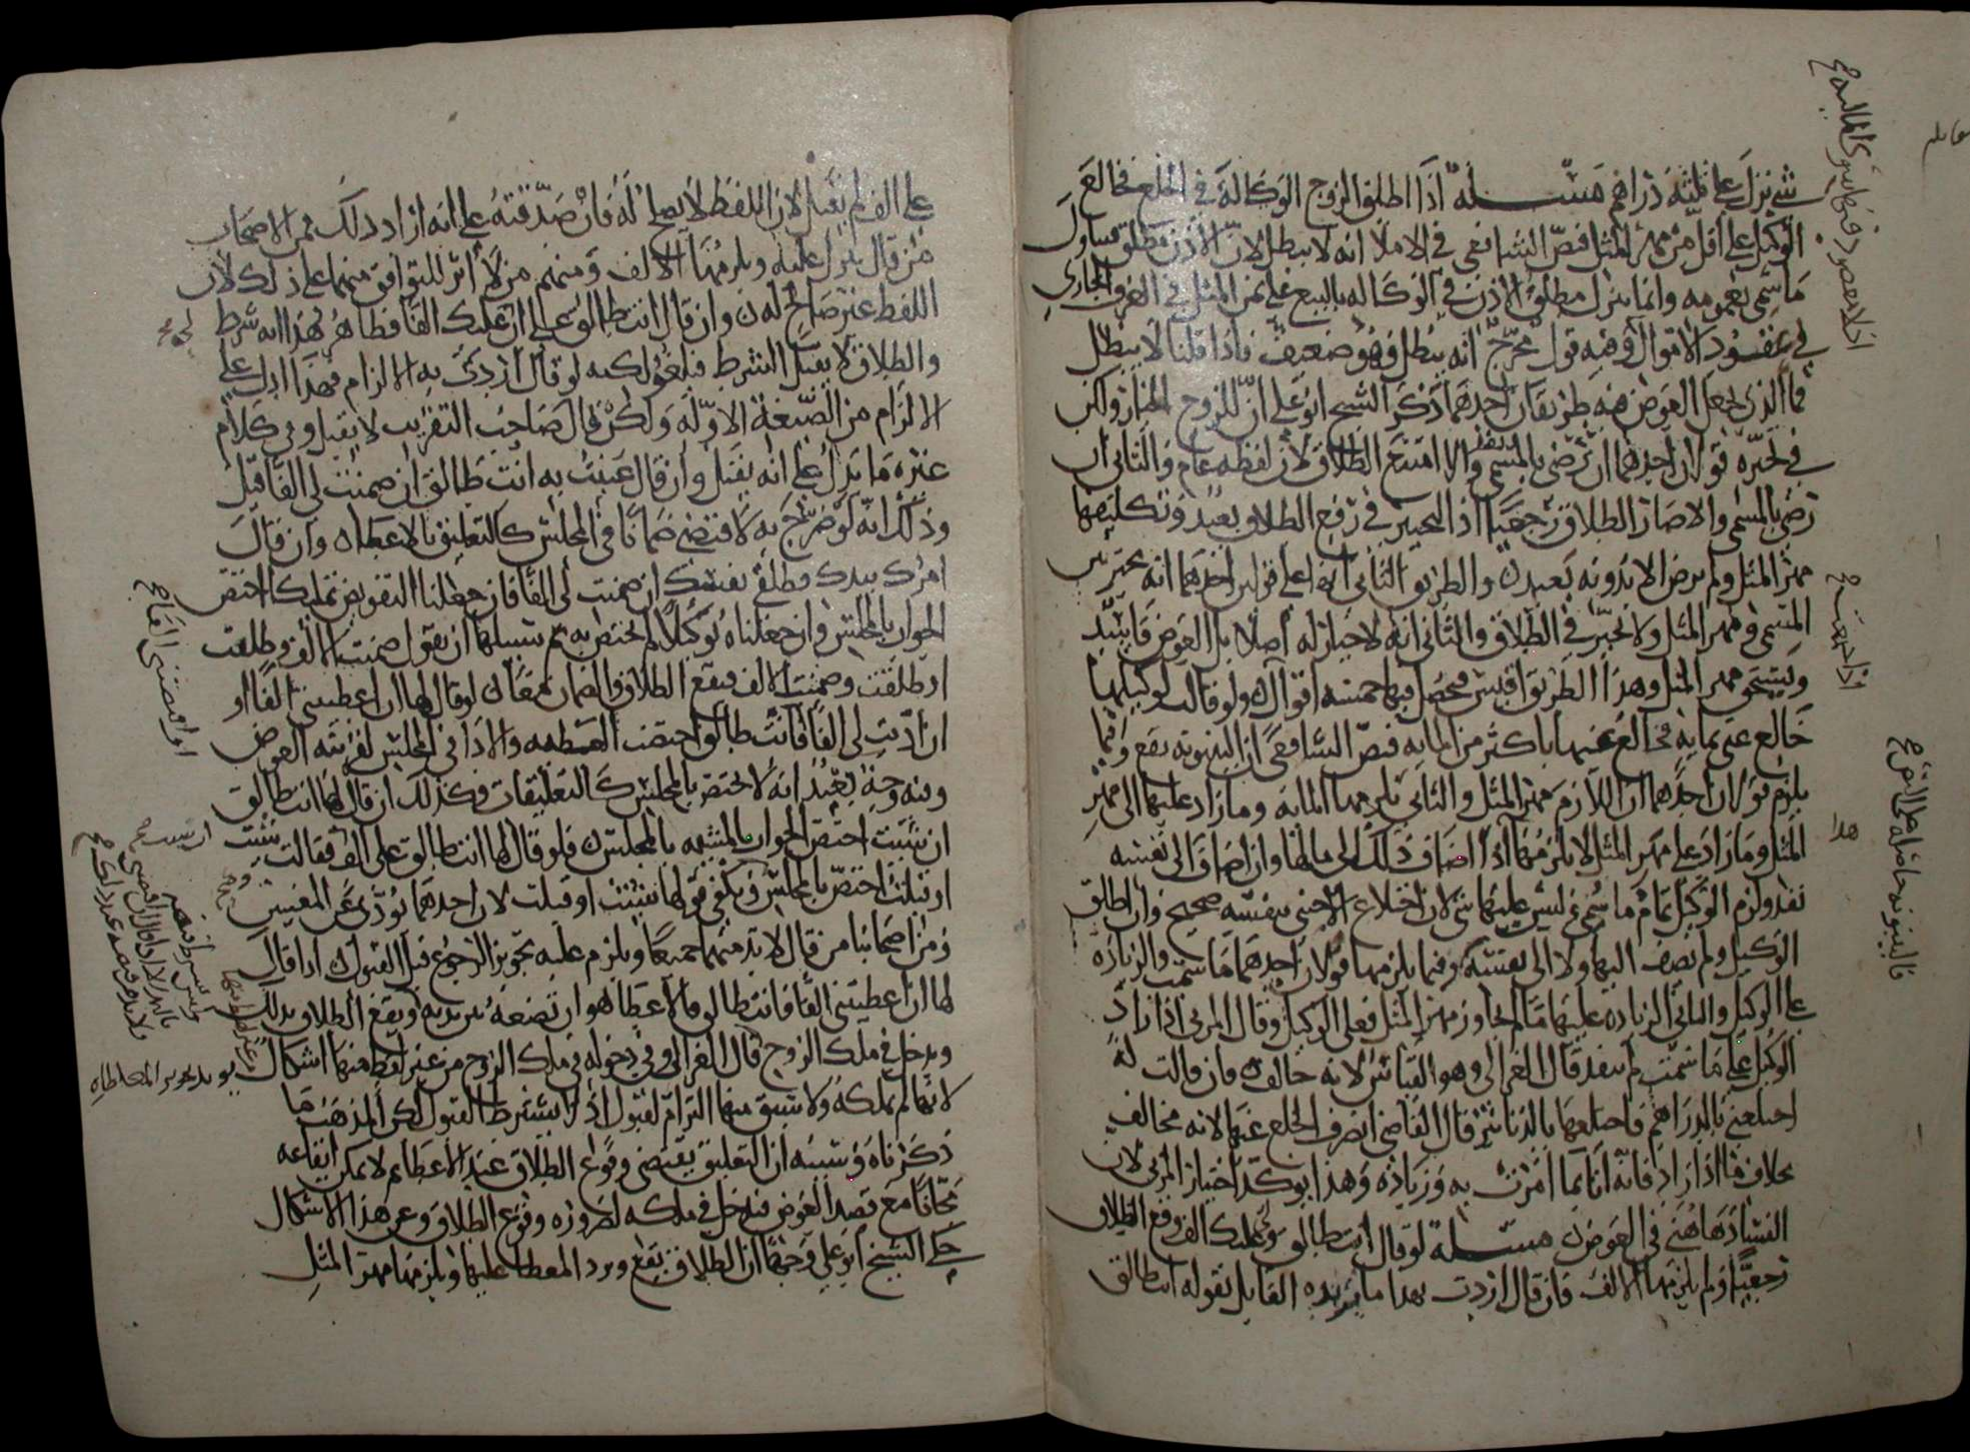 شي نزل على ثلثة دراهم مسئلة اذا اطلق الزوج الوكالة في الخلع فخالع
الوكيل على اقل من مهر المثل فنص الشافعي في الاملا انه لا يبطل لان الاذن مطلق يتناول
ما سمي بعمومه وانما ينزل مطلق الاذن في الوكالة بالبيع على ثمن المثل في العرف الجاري
في عقود الاموال وفيه قول مخرج انه يبطل وهو ضعيف فاذا قلنا لا يبطل
فما الذي يجعل العوض فيه طريقان احدهما ذكر الشيخ ابو علي ان للزوج الخيار ولكن
في تخيره قولان احدهما ان رضي بالمسمى والا امتنع الطلاق لان لفظه عام والثاني ان
رضي بالمسمى والا صار الطلاق رجعيا اذ التخيير في رفع الطلاق بعيد وتكليفها
مهر المثل ولم يرض الا بدونه بعيد والطريق الثاني انه على قولين احدهما انه يتخير بين
المسمى ومهر المثل ولا تخير في الطلاق والثاني انه لا خيار له اصلا بل العوض فاسد
ويستحق مهر المثل وهذا الطريق اقيس فحصل فيها خمسة اقوال ولو قالت لوكيلها
خالع عني بماية فخالع عنها باكثر من الماية فنص الشافعي ان البينونة تقع وفيما
يلزم قولان احدهما ان اللازم مهر المثل والثاني يلزمها الماية وما زاد عليها الى مهر
المثل وما زاد على مهر المثل لا يلزمها اذا اضاف ذلك الى مالها وان اضاف الى نفسه
نفذ ولزم الوكيل تمام ما سمي وليس عليها شي لان اختلاع الاجنبي بنفسه صحيح وان اطلق
الوكيل ولم يضف اليها ولا الى نفسه وفيما يلزمها قولان احدهما ما سمت والزيادة
على الوكيل والثاني الزيادة عليها ما لم يجاوز مهر المثل فعلى الوكيل وقال المزني اذا زاد
الوكيل على ما سمت لم ينفذ قال الغزالي وهو القياس لانه خالف فان قالت له
اختلعني بالدراهم فاختلعها بالدنانير قال القاضي انصرف الخلع عنها لانه مخالف
بخلاف ما اذا زاد فانه اتا بما امرت به وزيادة وهذا يوكد اختيار المزني لان
الفساد هاهنا في العوض مسئلة لو قال انت طالق ولي عليك الف وقع الطلاق
رجعيا ولم يلزمها الالف فان قال اردت بهذا ما يريده القايل بقوله انت طالق
هذا
على الف لم يقبل لان اللفظ لا يصلح له فان صدقته على انه اراد ذلك فمن الاصحاب
من قال ينزل عليه ويلزمها الالف ومنهم من لا اثر للتوافق منهما على ذلك لان
اللفظ غير صالح له وان قال انت طالق على ان عليك الفا فظاهر هذا انه شرط
والطلاق لا يقبل الشرط فيلغو لكنه لو قال اردت به الالزام فهذا ادل على
الالزام من الصيغة الاولة ولكن قال صاحب التقريب لا يقبل وفي كلام
غيره ما يدل على انه يقبل وان قال عنيت به انت طالق ان ضمنت لي الفا قبل
وذلك انه لو صرح به لاقتضى ضمانا في المجلس كالتعليق بالاعطاء وان قال
امرك بيدك فطلقي نفسك ان ضمنت لي الفا فان جعلنا التفويض تمليكا اختص
الجواب بالمجلس وان جعلناه توكيلا لم يختص به ثم سبيلها ان تقول ضمنت الالف وطلقت
او طلقت وضمنت الالف فيقع الطلاق والضمان معا لو قال لها ان اعطيتني الفا او
ان اديت لي الفا فانت طالق اختصت العطية والاداء في المجلس لقرينة العوض
وفيه وجه بعيد انه لا يختص بالمجلس كالتعليقات وكذلك ان قال لها انت طالق
ان شيت اختص الجواب بالمشية بالمجلس فلو قال لها انت طالق على الف فقالت شيت
او قبلت اختص بالمجلس ويكفي قولها شيت او قبلت لان احدهما يؤدي عن المعنيين
ومن اصحابنا من قال لا بد منهما جميعا ويلزم عليه تجويز الرجوع قبل القبول اذا قال
لها ان اعطيتني الفا فانت طالق فالاعطا هو ان تضعه بين يديه ويقع الطلاق بذلك
ويدخل في ملك الزوج قال الغزالي وفي دخوله في ملك الزوج من غير لفظ منها اشكال
لانها لم تملكه ولا سبق منها التزام لقبول اذ لا يشترط القبول لكن المذهب ما
ذكرناه وسببه ان التعليق يقتضي وقوع الطلاق عند الاعطاء ثم لا يمكن ايقاعه
مجانا مع قصد العوض فيدخل في ملكه لضرورة وقوع الطلاق وعن هذا الاشكال
حكى الشيخ ابو علي وجها ان الطلاق يقع ويرد المعطا عليها ويلزمها مهر المثل